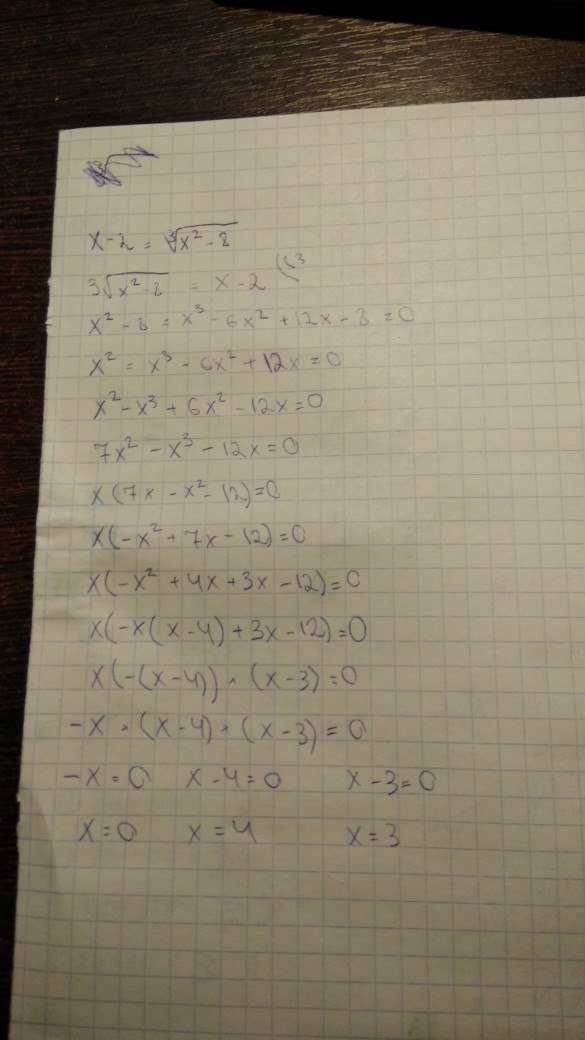 x-2 = ∛(x²-8)
3√(x²-8) = x-2 (³
x² - 8 = x³ - 6x² + 12x - 8 = 0
x² = x³ - 6x² + 12x = 0
x² - x³ + 6x² - 12x = 0
7x² - x³ - 12x = 0
x(7x - x² - 12) = 0
x(-x² + 7x - 12) = 0
x(-x² + 4x + 3x - 12) = 0
x(-x(x-4) + 3x - 12) = 0
x(-(x-4)) · (x-3) = 0
-x · (x-4) · (x-3) = 0
-x = 0 x-4 = 0 x-3 = 0
x = 0 x = 4 x = 3